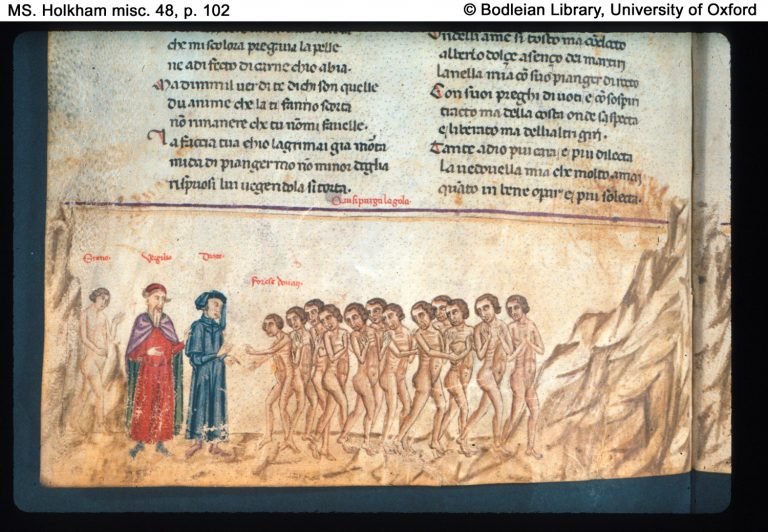 MS. Holkham misc. 48, p. 102
© Bodleian Library, University of Oxford
che mi scolora pregaua la pelle
ne adifecto di carne chio abia.
Ma dimmil uer di te di chi son quelle
du anime che la ti fanno scorta
nõ rimanere che tu nõmi fauelle.
La faccia tua chio lagrimai gia morta
mi da di pianger mo nõ minor doglia
rispuosi lui uegendola si torta.
Ondelli ame si tosto ma cõdocto
alberlo dolçe asenço dei martiri
la nella mia cõ suo pianger dirocto
Con suoi preghi diuoti e cõ sospiri
tracto ma della costa oue saspecta
e liberato ma delli altri giri.
Tante adio piu cara e piu dilecta
la uedouella mia che molto amai
quãto in bene oprar e piu solecta.
si purga la gola
Statio. Virgilio Dante.
forese donati